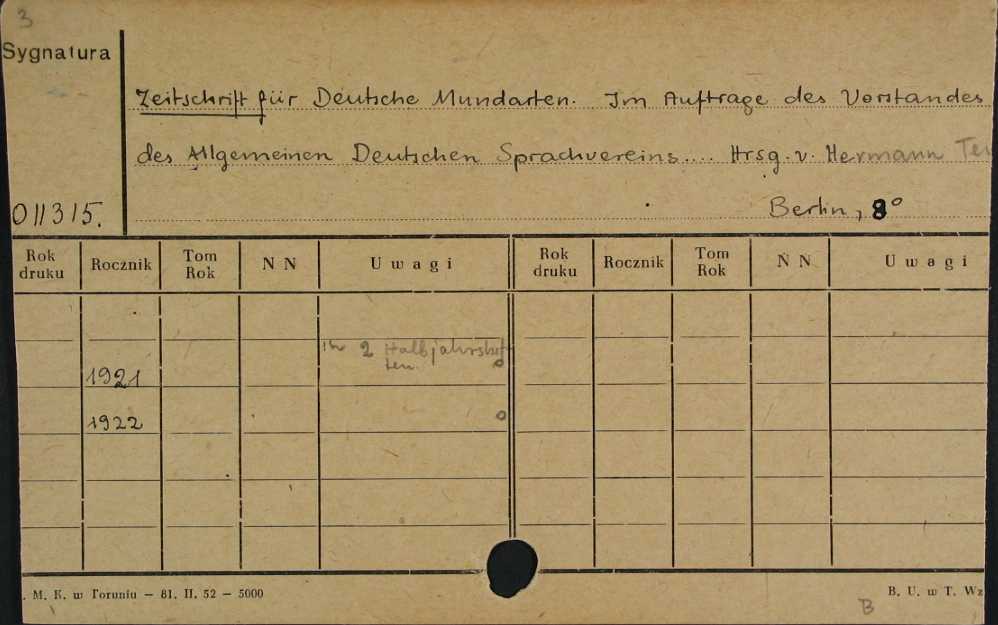 3
Sygnatura
Zeitschrift für Deutsche Mundarten. Im Auftrage des Vorstandes
des Allgemeinen Deutschen Sprachvereins.... Hrsg. v. Hermann Teu
011315.
Berlin, 8°
Rok druku Rocznik Tom Rok N N U w a g i Rok druku Rocznik Tom Rok N N U w a g i
in 2 Halbjahrshef-
ten.
1921
1922
. M. K. w Toruniu — 81. II. 52 — 5000 B. U. w T. Wz
B